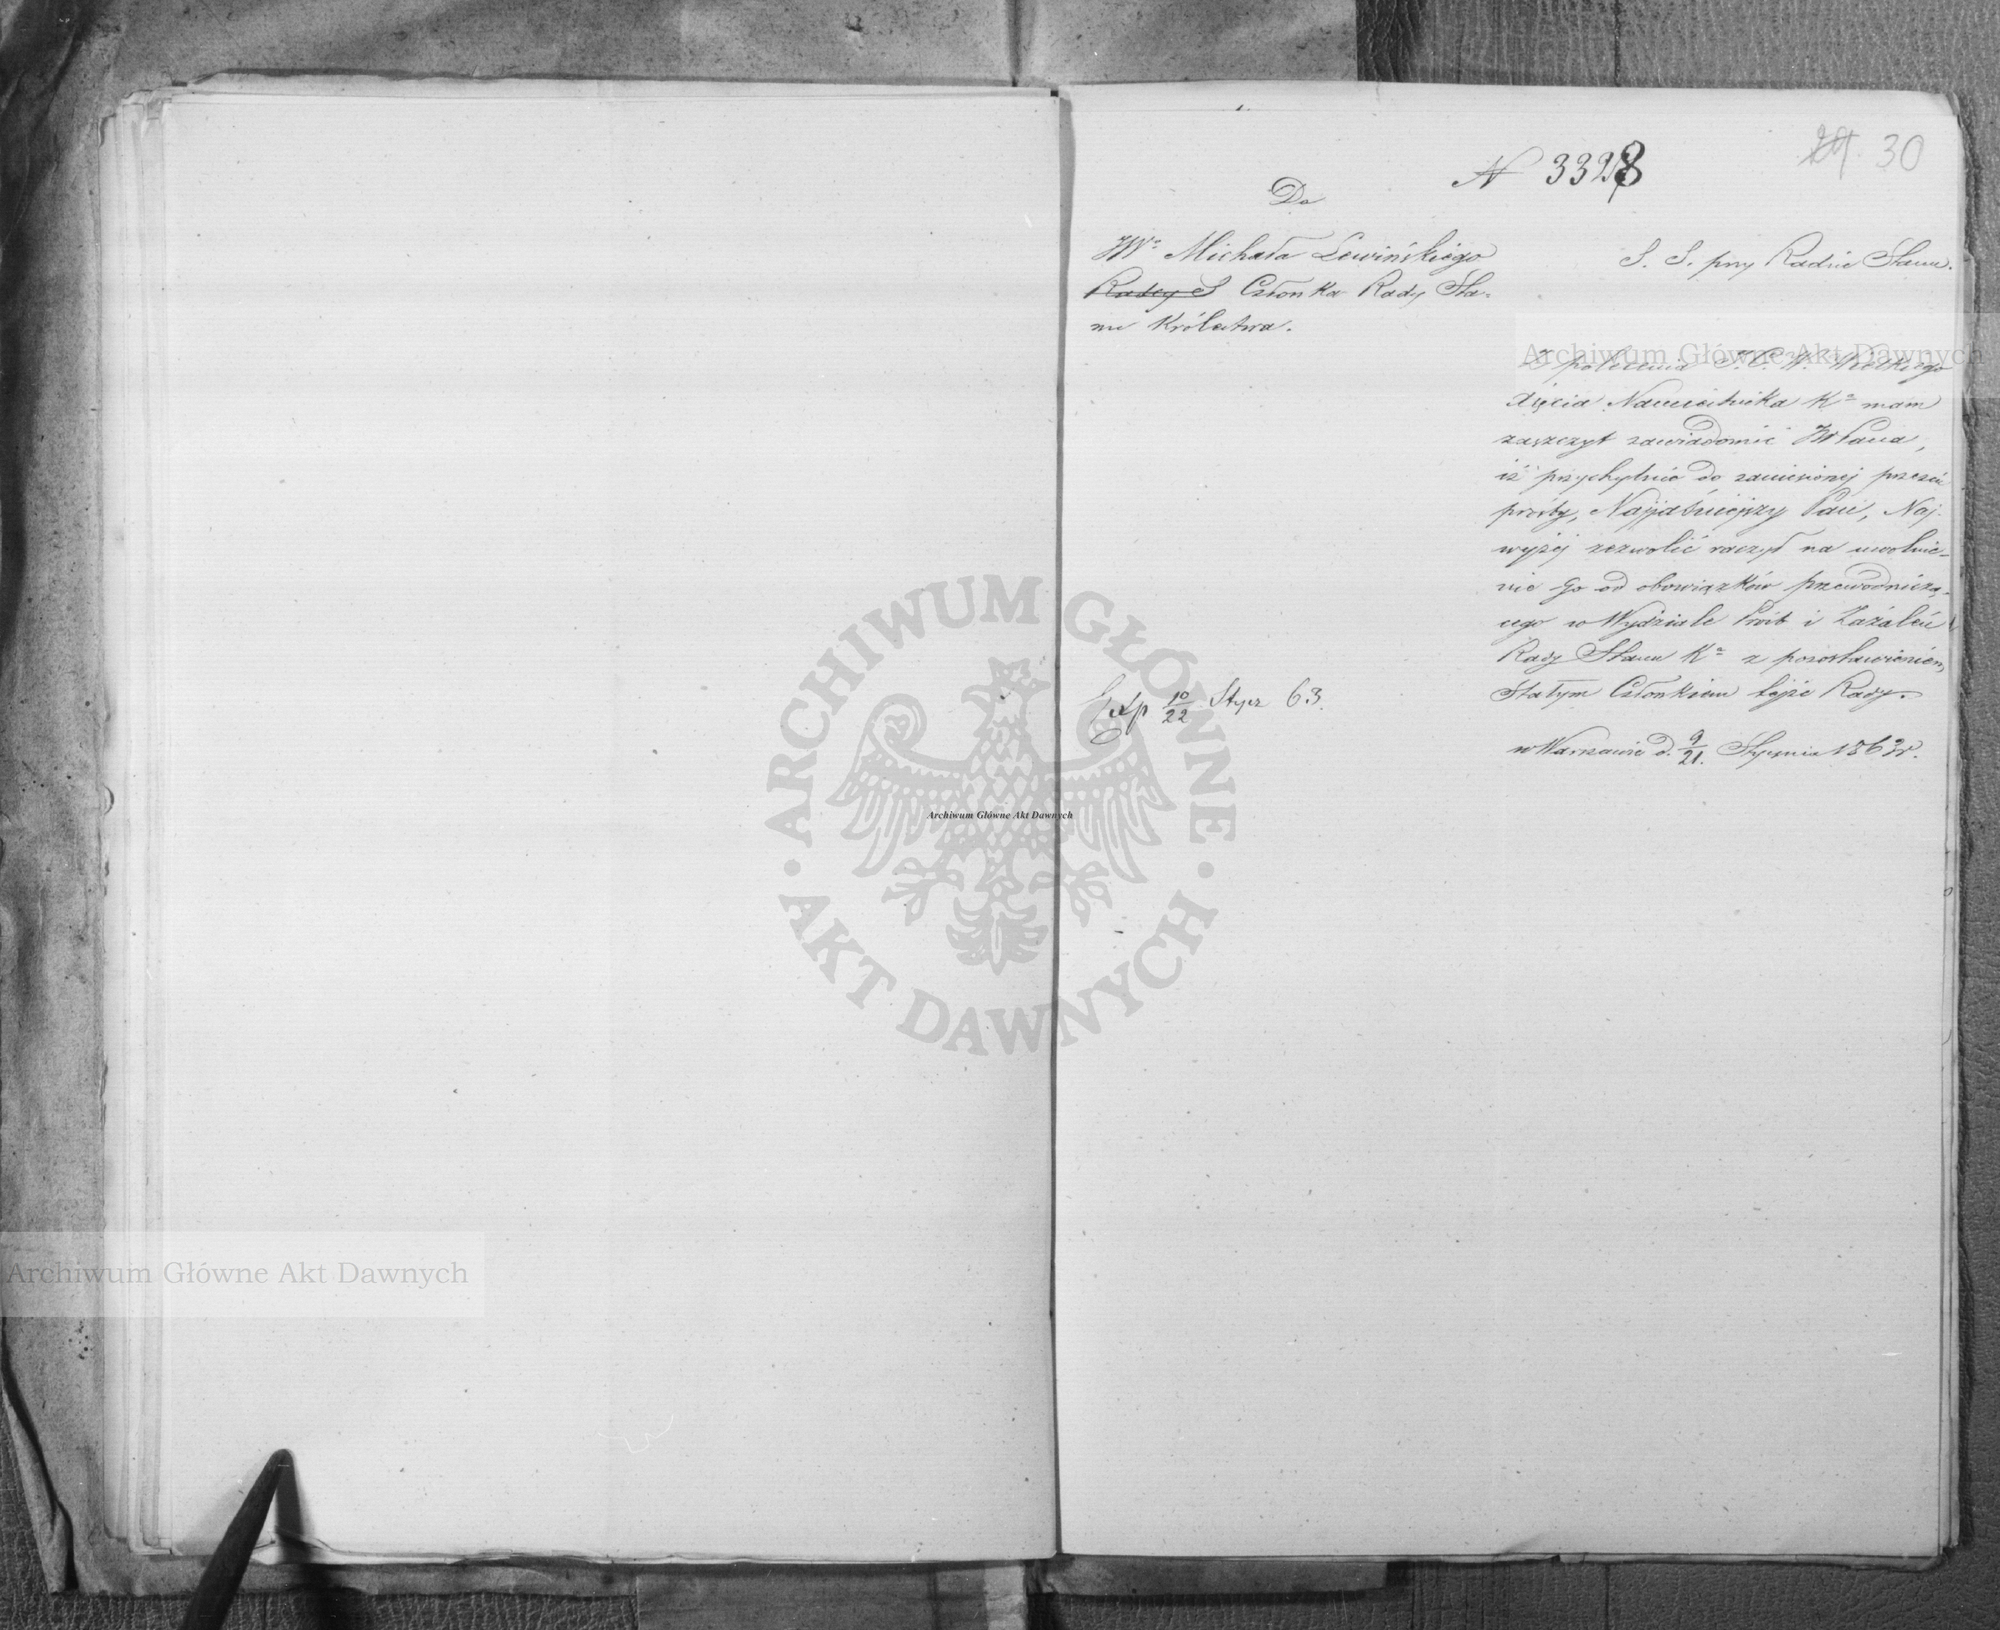 29 30
N 3328
Do
JWo Michała Lewińskiego
Radcy S Członka Rady Sta-
nu Królestwa.
S. S. przy Radzie Stanu.
Z polecenia J. C. W. Wielkiego
Xięcia Namiestnika Ka mam
zaszczyt zawiadomić JWPana,
iż przychylnie do zaniesionej przezeń
prośby, Najjaśniejszy Pan, Naj-
wyżej zezwolić raczył na uwolnie-
nie Go od obowiązków przewodniczą-
cego w Wydziale Próśb i Zażaleń
Rady Stanu Ka z pozostawieniem
Stałym Członkiem tejże Rady.
w Warszawie d. 9/21. Stycznia 1863 r.
Exp 10/22 Stycz 63.
Archiwum Główne Akt Dawnych
ARCHIWUM GŁÓWNE
AKT DAWNYCH
Archiwum Główne Akt Dawnych
Archiwum Główne Akt Dawnych